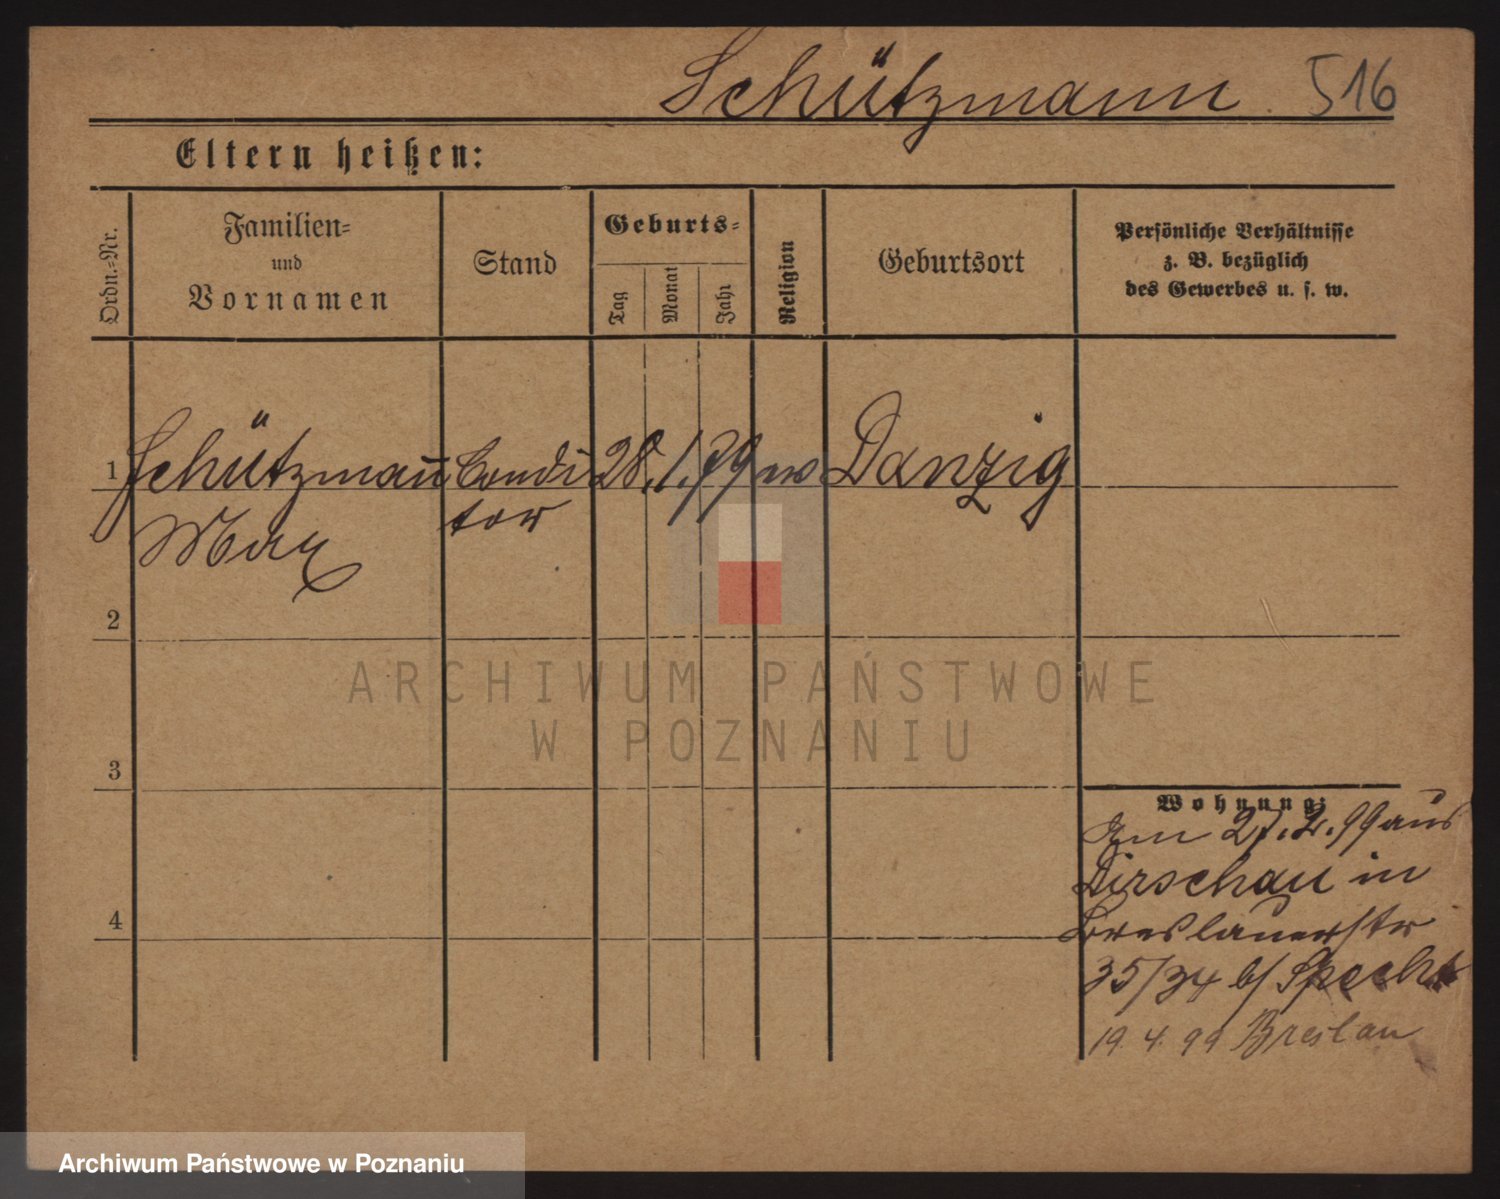 Schützmann 516
Eltern heißen:
Ordn.-Nr.
Familien-
und
Vornamen
Stand
Geburts-
Tag
Monat
Jahr
Religion
Geburtsort
Persönliche Verhältnisse
z. B. bezüglich
des Gewerbes u. s. w.
1 Schützmann Condi 28. 1. 79 Danzig
tor
Max
2
ARCHIWUM PAŃSTWOWE
W POZNANIU
3
Wohnung:
Am 27. 2. 99 aus
Dirschau in
Breslauerstr
35/34 b/ Specht
4
19. 4. 99 Breslau
Archiwum Państwowe w Poznaniu